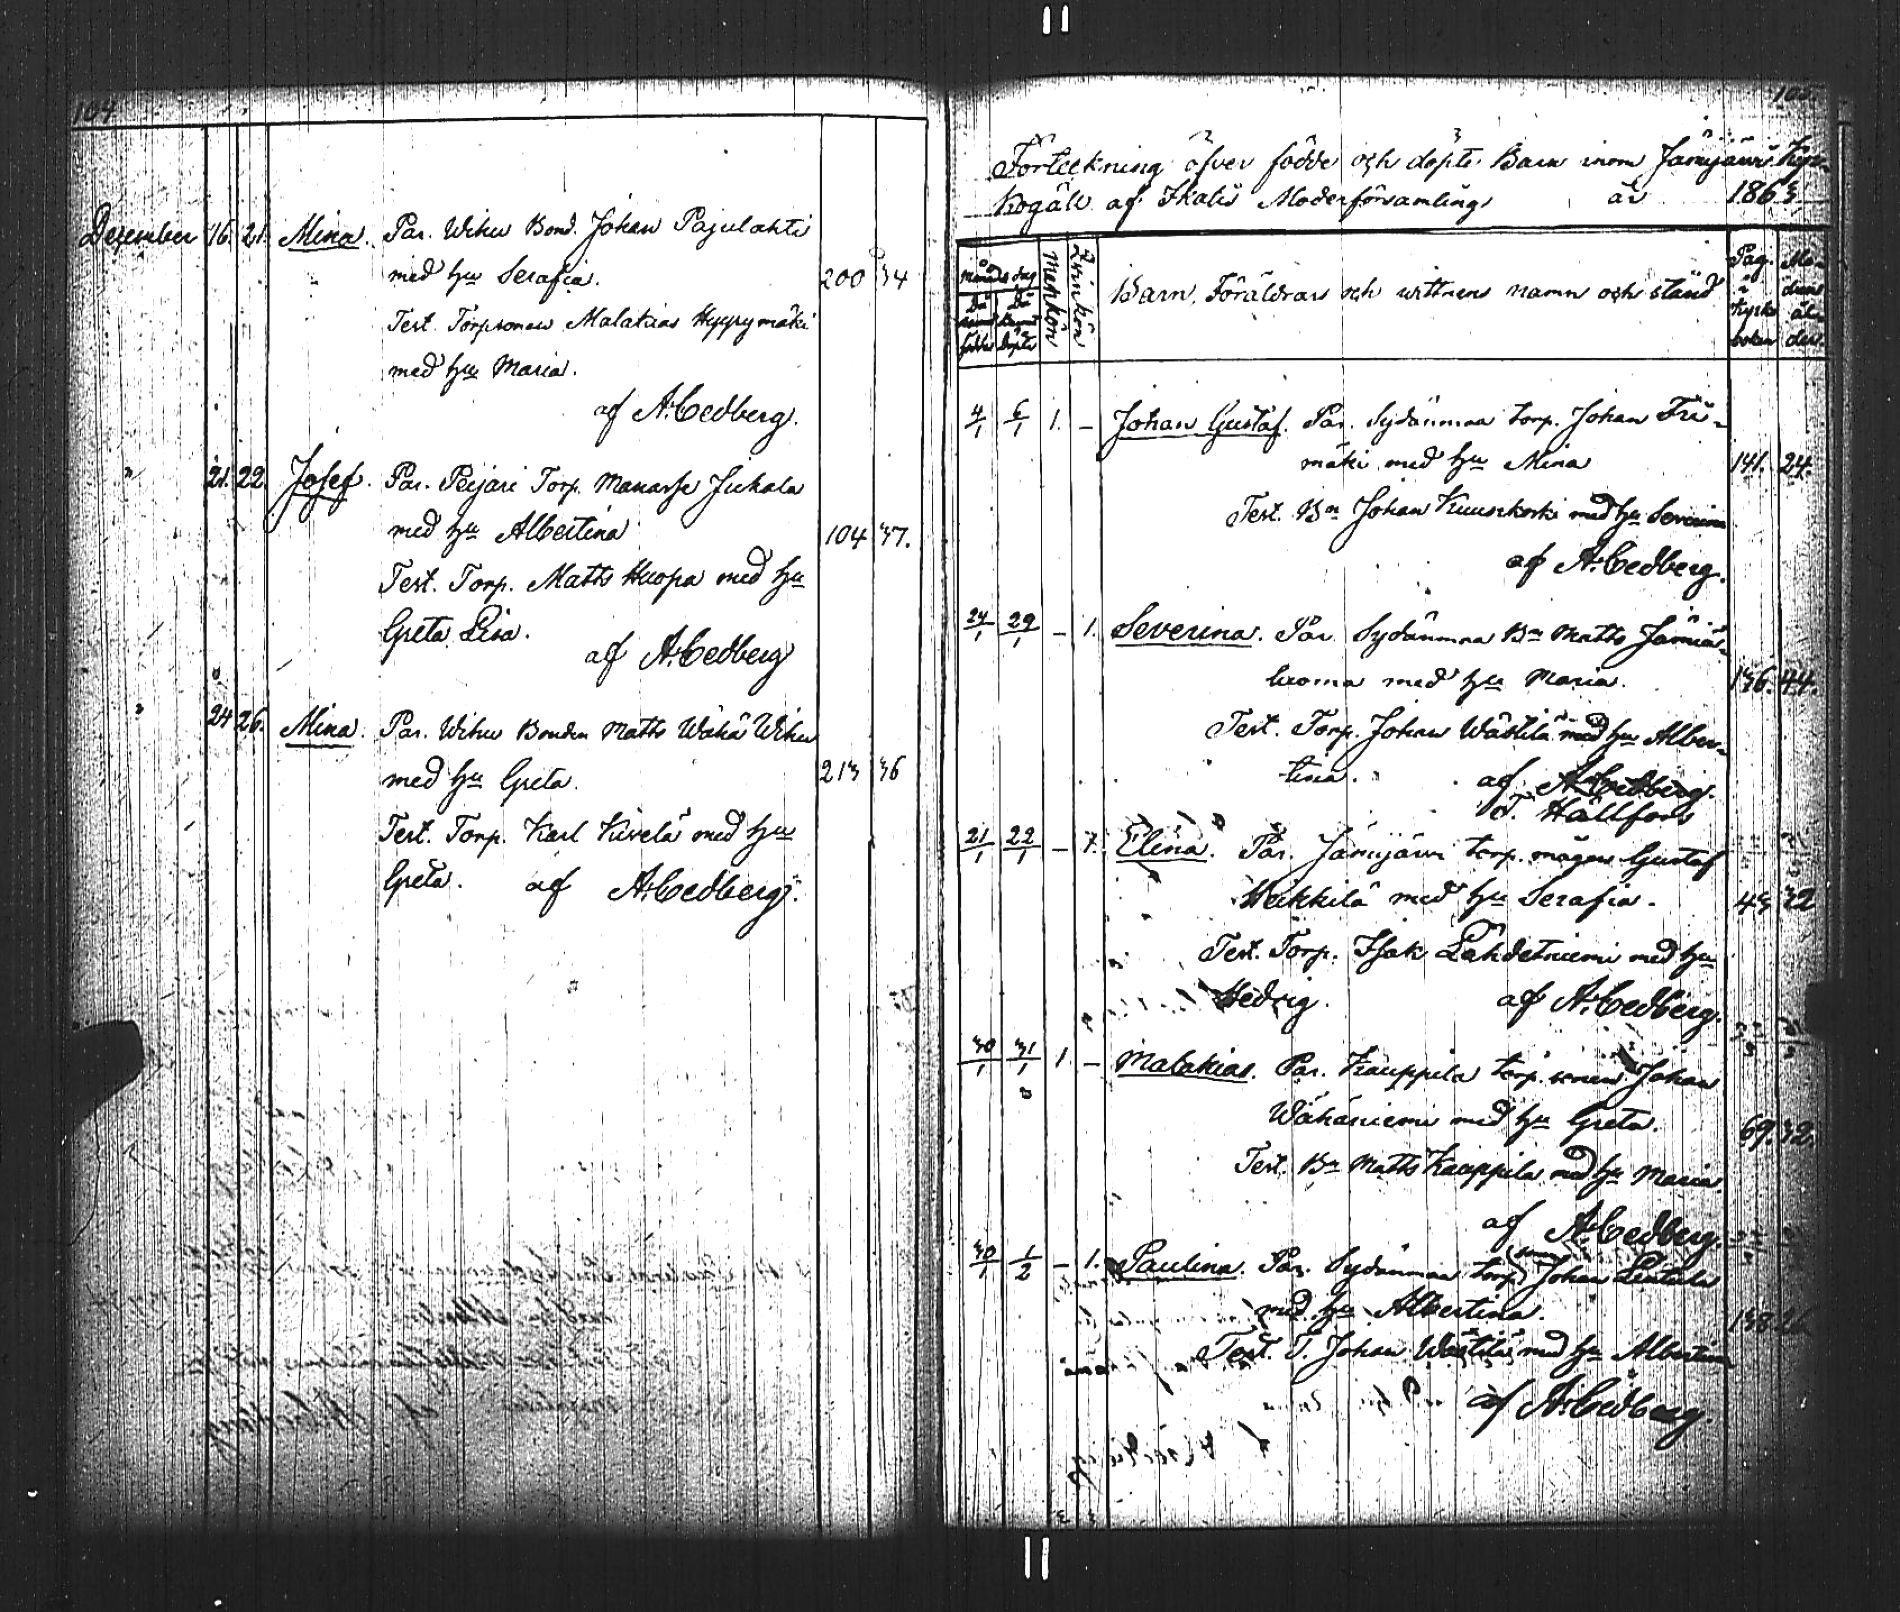 104
December 16. 21. Mina. Par. Wihu Bond. Johan Pajulahti
med hu Serafia. 200 34
Test. Torpsonen Malakias Hyppymäki
med hu Maria.
af A. Cedberg.
" 21. 22. Josef. Par. Peijari Torp. Manasse Jukala
med hu Albertina 104 37.
Test. Torp. Matts Huopa med hu
Greta Lisa.
af A. Cedberg
" 24 26. Mina. Par. Wihu Bonden Matts Wähä Wihu
med hu Greta. 213 36
Test. Torp. Karl Kivelä med hu
Greta. af A. Cedberg.
105.
Förteckning öfver födde och döpte Barn inom Jämijärvi Kyr-
kogäll af Ikalis Moderförsamling år 1863
Månads dag
Mankön
Qvinkön
Barn, Föräldrars och wittnens namn och stånd
Pag. i Kyrko boken
Mo- drens ål- der.
4/1 6/1 1. – Johan Gustaf. Par. Sydänmaa torp. Johan Yli-
mäki med hu Mina 141. 24.
Test. Bn Johan Kuuskoski med hu Severina
af A. Cedberg.
24/1 29/1 – 1. Severina. Par. Sydänmaa Bn Matts Jämiä-
luoma med hu Maria. 136. 44.
Test. Torp. Johan Wästilä med hu Alber-
tina. af A. Cedberg.
Hällfors
21/1 22/1 – 1. Elina. Par. Jämijärvi torp. mågen Gustaf
Heikkilä med hu Serafia. 43 32
Test. Torp. Isak Lähdetniemi med hu
Hedvig. af A. Cedberg.
30/1 31/1 1 – Malakias. Par. Kauppila torp. sonen Johan
Wähäniemi med hu Greta. 69. 32.
Test. Bn Matts Kauppila med hu Maria.
af A. Cedberg.
30/1 1/2 – 1. Paulina. Par. Sydänmaa torp. sonen Johan Lentala
med hu Albertina. 138
Test. T. Johan Wästilä med hu Albertina
af A. Cedberg.